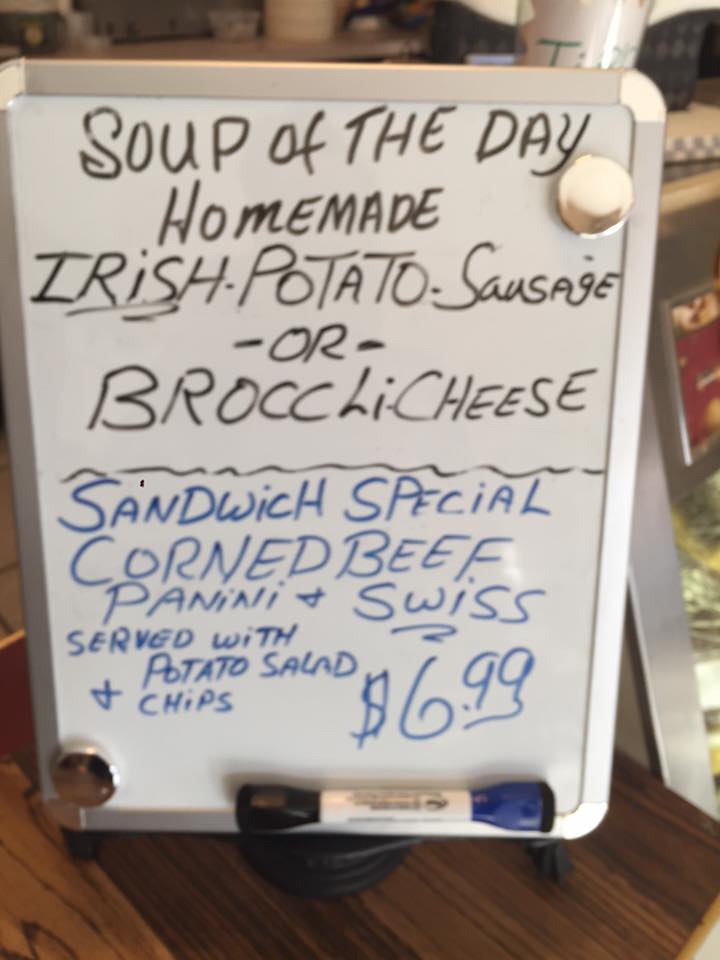 SOUP of THE DAY
HOMEMADE
IRISH-POTATO-SAUSAGE
-OR-
BROCCLI-CHEESE
SANDWICH SPECIAL
CORNED BEEF
PANINI + SWISS
SERVED WITH
POTATO SALAD
+ CHIPS
$6.99